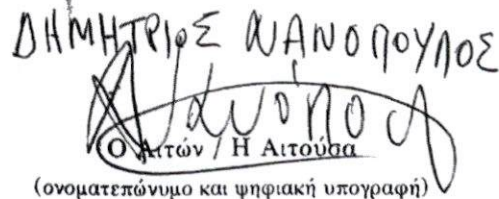 ΔΗΜΗΤΡΙΟΣ ΝΑΝΟΠΟΥΛΟΣ
Ο Αιτών / Η Αιτούσα
(ονοματεπώνυμο και ψηφιακή υπογραφή)